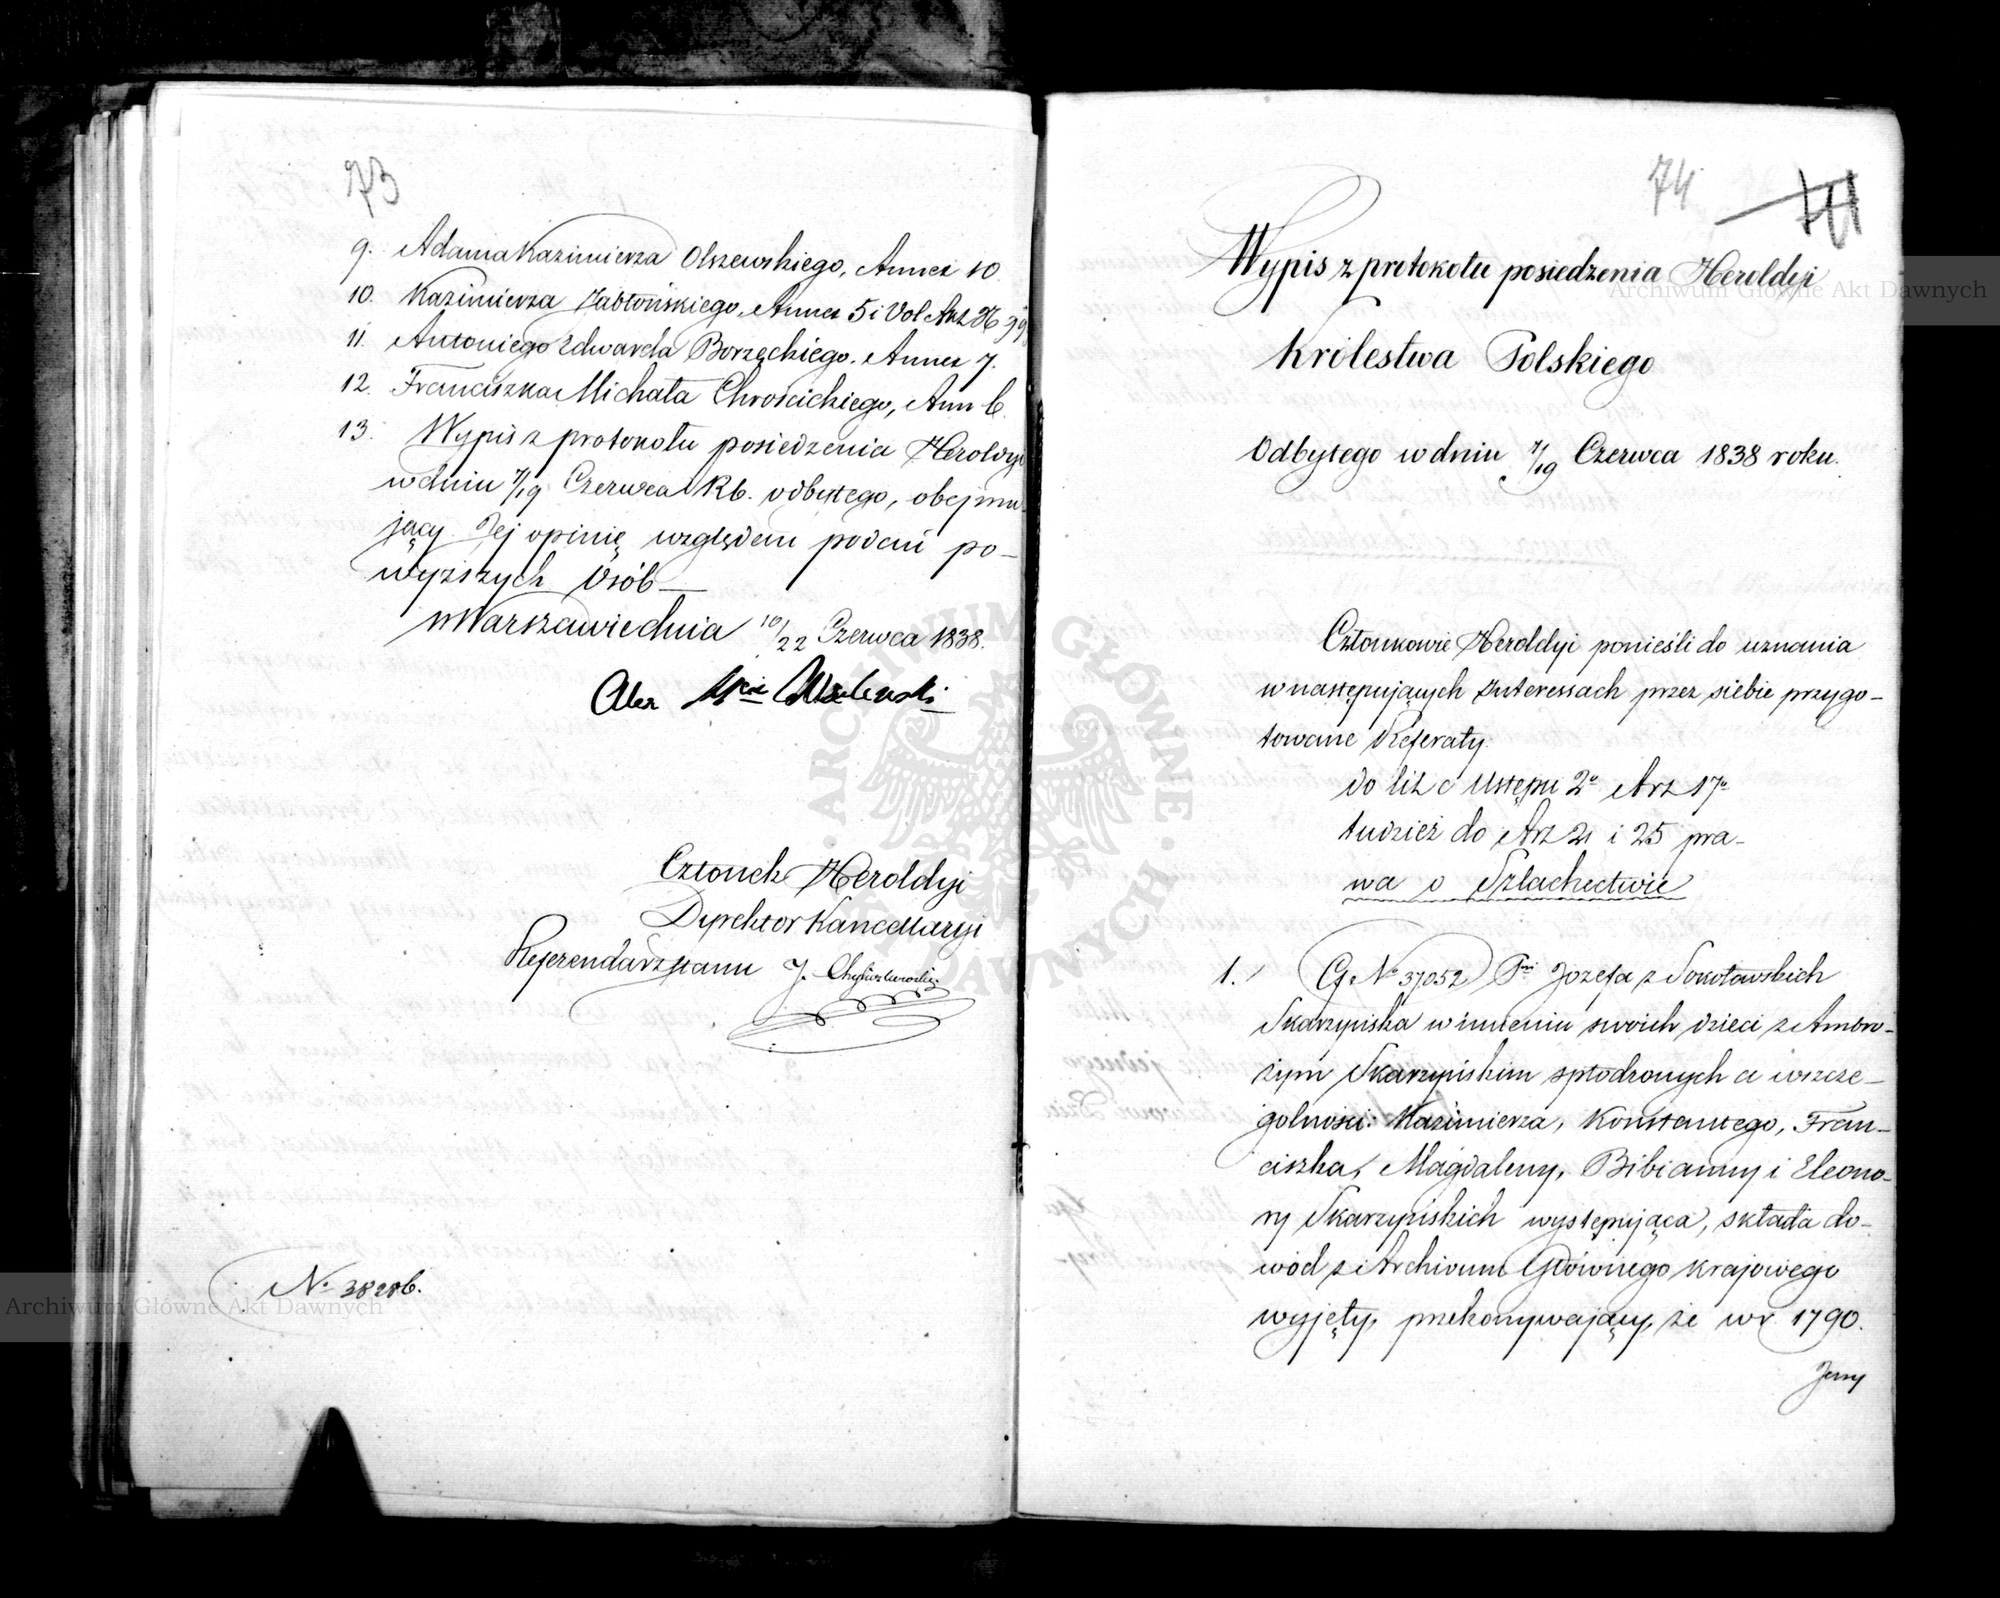 73
9. Adama Kazimierza Olszewskiego, Annex 10.
10. Kazimierza Jabłońskiego, Annex 5 i Vol
11. Antoniego Edwarda Borzęckiego. Annex 7.
12. Franciszka Michała Chrościckiego, Ann 6.
13. Wypis z protokołu posiedzenia Heroldyi
w dniu 7/19 Czerwca Rb. odbytego, obejmu-
jący Jej opinię względem podań po-
wyższych Osób —
w Warszawie dnia 10/22 Czerwca 1838.
Alex
Członek Heroldyi
Dyrektor Kancellaryi
Referendarz Stanu J.
No
74
Wypis z protokołu posiedzenia Heroldyi
Królestwa Polskiego
Odbytego w dniu 7/19 Czerwca 1838 roku.
Członkowie Heroldyi ponieśli do uznania
w następujących Interessach przez siebie przygo-
towane Referaty.
do lit c Ustępu 2o Art 17o
tudzież do Art 21 i 25 pra-
wa o Szlachectwie
1. G. No 37052 Pni Jozefa z Sokołowskich
Skarzyńska w imieniu swoich dzieci z Ambro-
żym Skarzyńskim spłodzonych a w szcze-
gólności: Kazimierza, Konstantego, Fran-
ciszka, Magdaleny, Bibianny i Eleono-
ry Skarzyńskich występująca, składa do-
wód z Archiwum Głównego Krajowego
wyjęty, przekonywający, że w r 1790.
Jerzy
Archiwum Główne Akt Dawnych
Archiwum Główne Akt Dawnych
ARCHIWUM GŁÓWNE AKT DAWNYCH